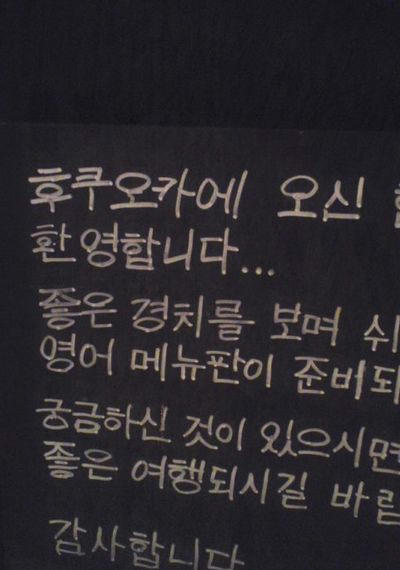 후쿠오카에 오신
환영합니다...
좋은 경치를 보며 쉬
영어 메뉴판이 준비되
궁금하신 것이 있으시면
좋은 여행되시길 바랍
감사합니다